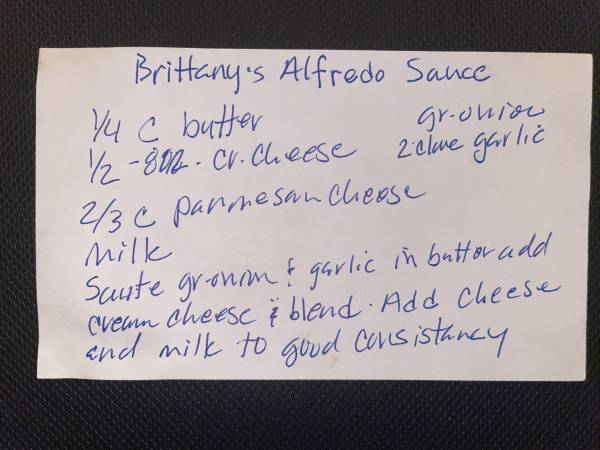 Brittany's Alfredo Sauce
1/4 C butter
gr-onion
1/2 - 8oz. cr. cheese
2 clove garlic
2/3 C parmesan cheese
Milk
Saute gr-onion & garlic in butter add
cream cheese & blend. Add cheese
and milk to good consistancy